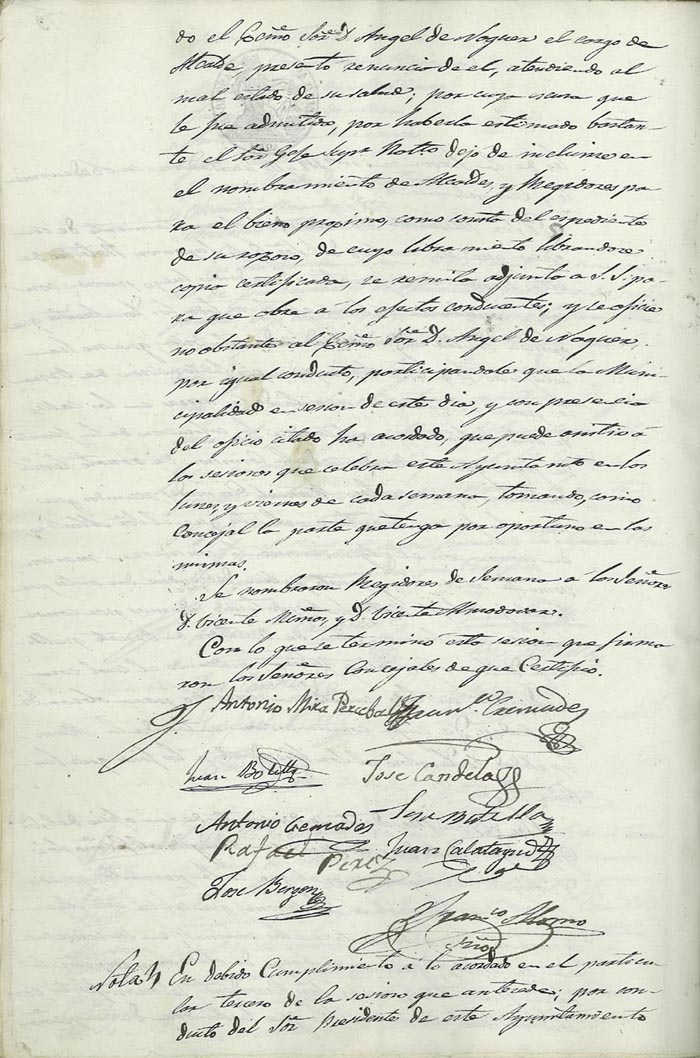 do el Exmo Sor. D. Angel de Noguer el cargo de
Alcalde presentó renuncia de el, atendiendo al
mal estado de su salud; por cuya causa que
le fue admitida, por haberla estimado bastan-
te el Sor Gefe Supr Polto dejo de incluirse en
el nombramiento de Alcaldes, y Regidores pa-
ra el bieno proximo, como consta del espediente
de su razon, de cuyo libramiento librandose
copia certificada, se remita adjunta a S. S. pa-
ra que obre á los efectos conducentes; y se oficie
no obstante al Exmo Sor. D. Angel de Noguer,
por igual conducto, participandole que la Muni-
cipalidad en sesion de este dia, y con presencia
del oficio citado ha acordado, que puede asistir á
las sesiones que celebra este Ayuntamto en los
lunes, y viernes de cada semana, tomando, como
Concejal la parte que tenga por oportuno en las
mismas.
Se nombraron Regidores de Semana á los Señores
D. Vicente Miñon, y D. Vicente Almodovar.
Con lo que se terminó esta sesion que firma-
ron los Señores Concejales de que Certifico.
Antonio Mira Perceval Franco Cremades
Juan Botella Jose Candela
Antonio Cremades Jose Botella
Rafael Perez Juan Calatayud
Jose Bergon
Franco Alamo
Srio
Nota En debido Cumplimiento á lo acordado en el particu-
lar tercero de la sesion que antecede; por con-
ducto del Sor Presidente de este Ayuntamiento